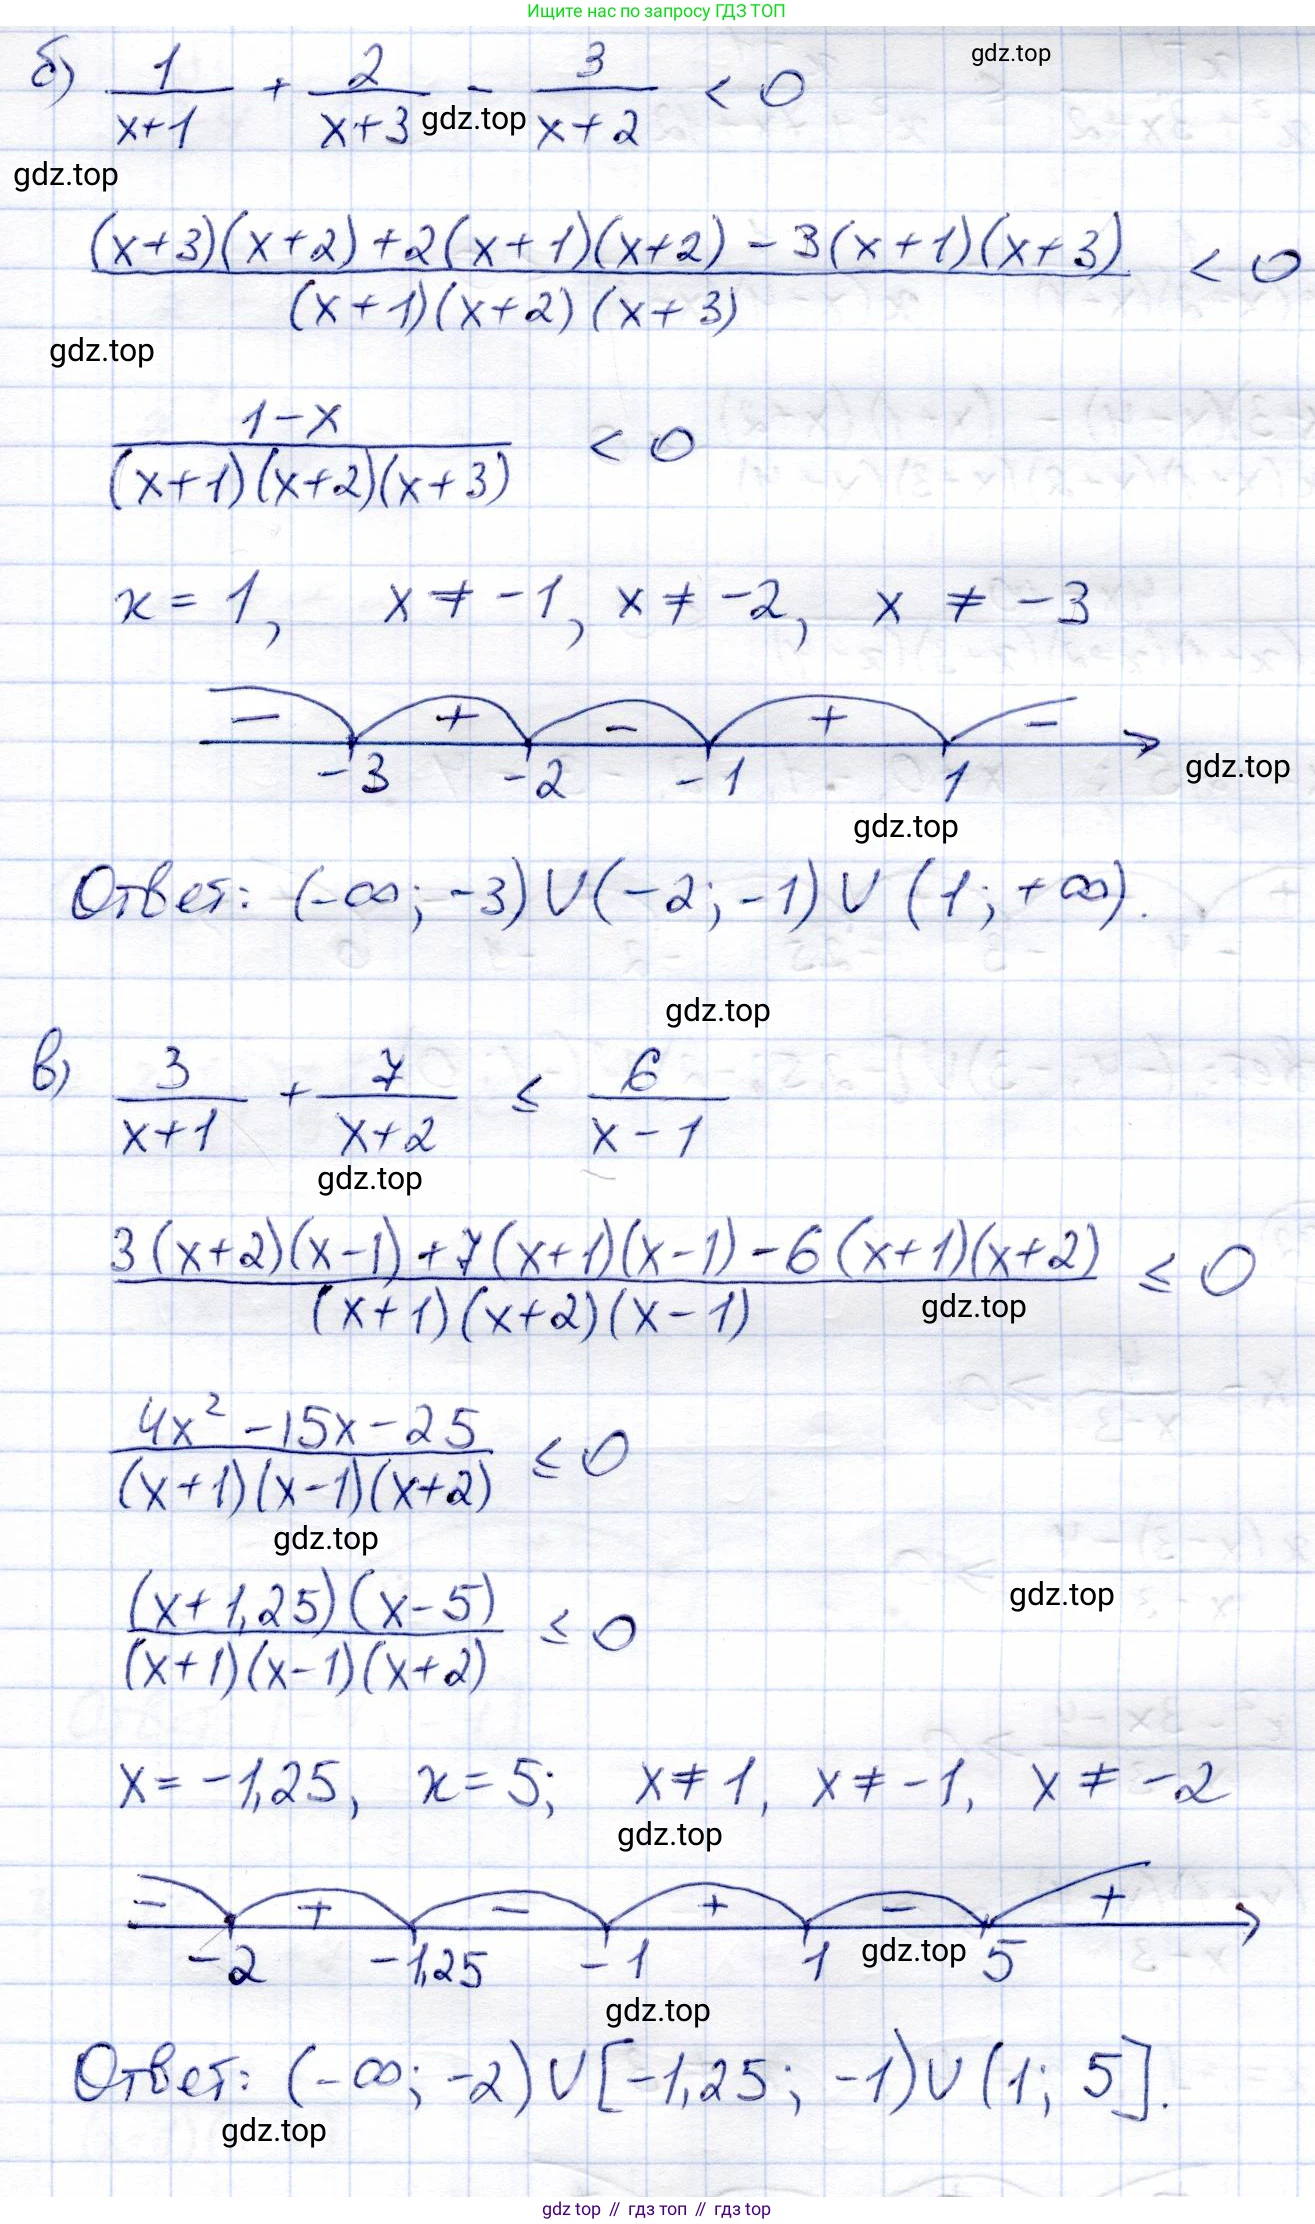 Ищите нас по запросу ГДЗ ТОП
б) 1/(x+1) + 2/(x+3) - 3/(x+2) < 0
gdz.top
gdz.top
gdz.top
((x+3)(x+2)+2(x+1)(x+2)-3(x+1)(x+3))/((x+1)(x+2)(x+3)) < 0
gdz.top
(1-x)/((x+1)(x+2)(x+3)) < 0
x=1, x≠-1, x≠-2, x≠-3
- + - + -
-3 -2 -1 1
gdz.top
gdz.top
Ответ: (-∞; -3)∪(-2; -1)∪(1; +∞).
gdz.top
в) 3/(x+1) + 7/(x+2) ≤ 6/(x-1)
gdz.top
(3(x+2)(x-1)+7(x+1)(x-1)-6(x+1)(x+2))/((x+1)(x+2)(x-1)) ≤ 0
gdz.top
(4x²-15x-25)/((x+1)(x-1)(x+2)) ≤ 0
gdz.top
((x+1,25)(x-5))/((x+1)(x-1)(x+2)) ≤ 0
gdz.top
x=-1,25, x=5; x≠1, x≠-1, x≠-2
gdz.top
- + - + - +
-2 -1,25 -1 1 5
gdz.top
gdz.top
Ответ: (-∞; -2)∪[-1,25; -1)∪(1; 5].
gdz.top
gdz top // гдз топ // gdz top